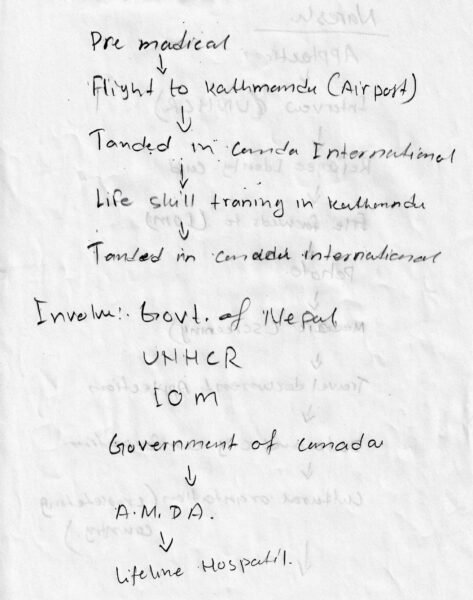 Pre madical
↓
Flight to Kathmandu (Airport)
↓
Tanded in Canda International
↓
Life skill traning in Kathmandu
↓
Tanded in Canadda international
Involve:. Govt. of Nepal
UNHCR
IOM
Government of Canada
↓
A.M.DA.
↓
Lifeline Hospatil.